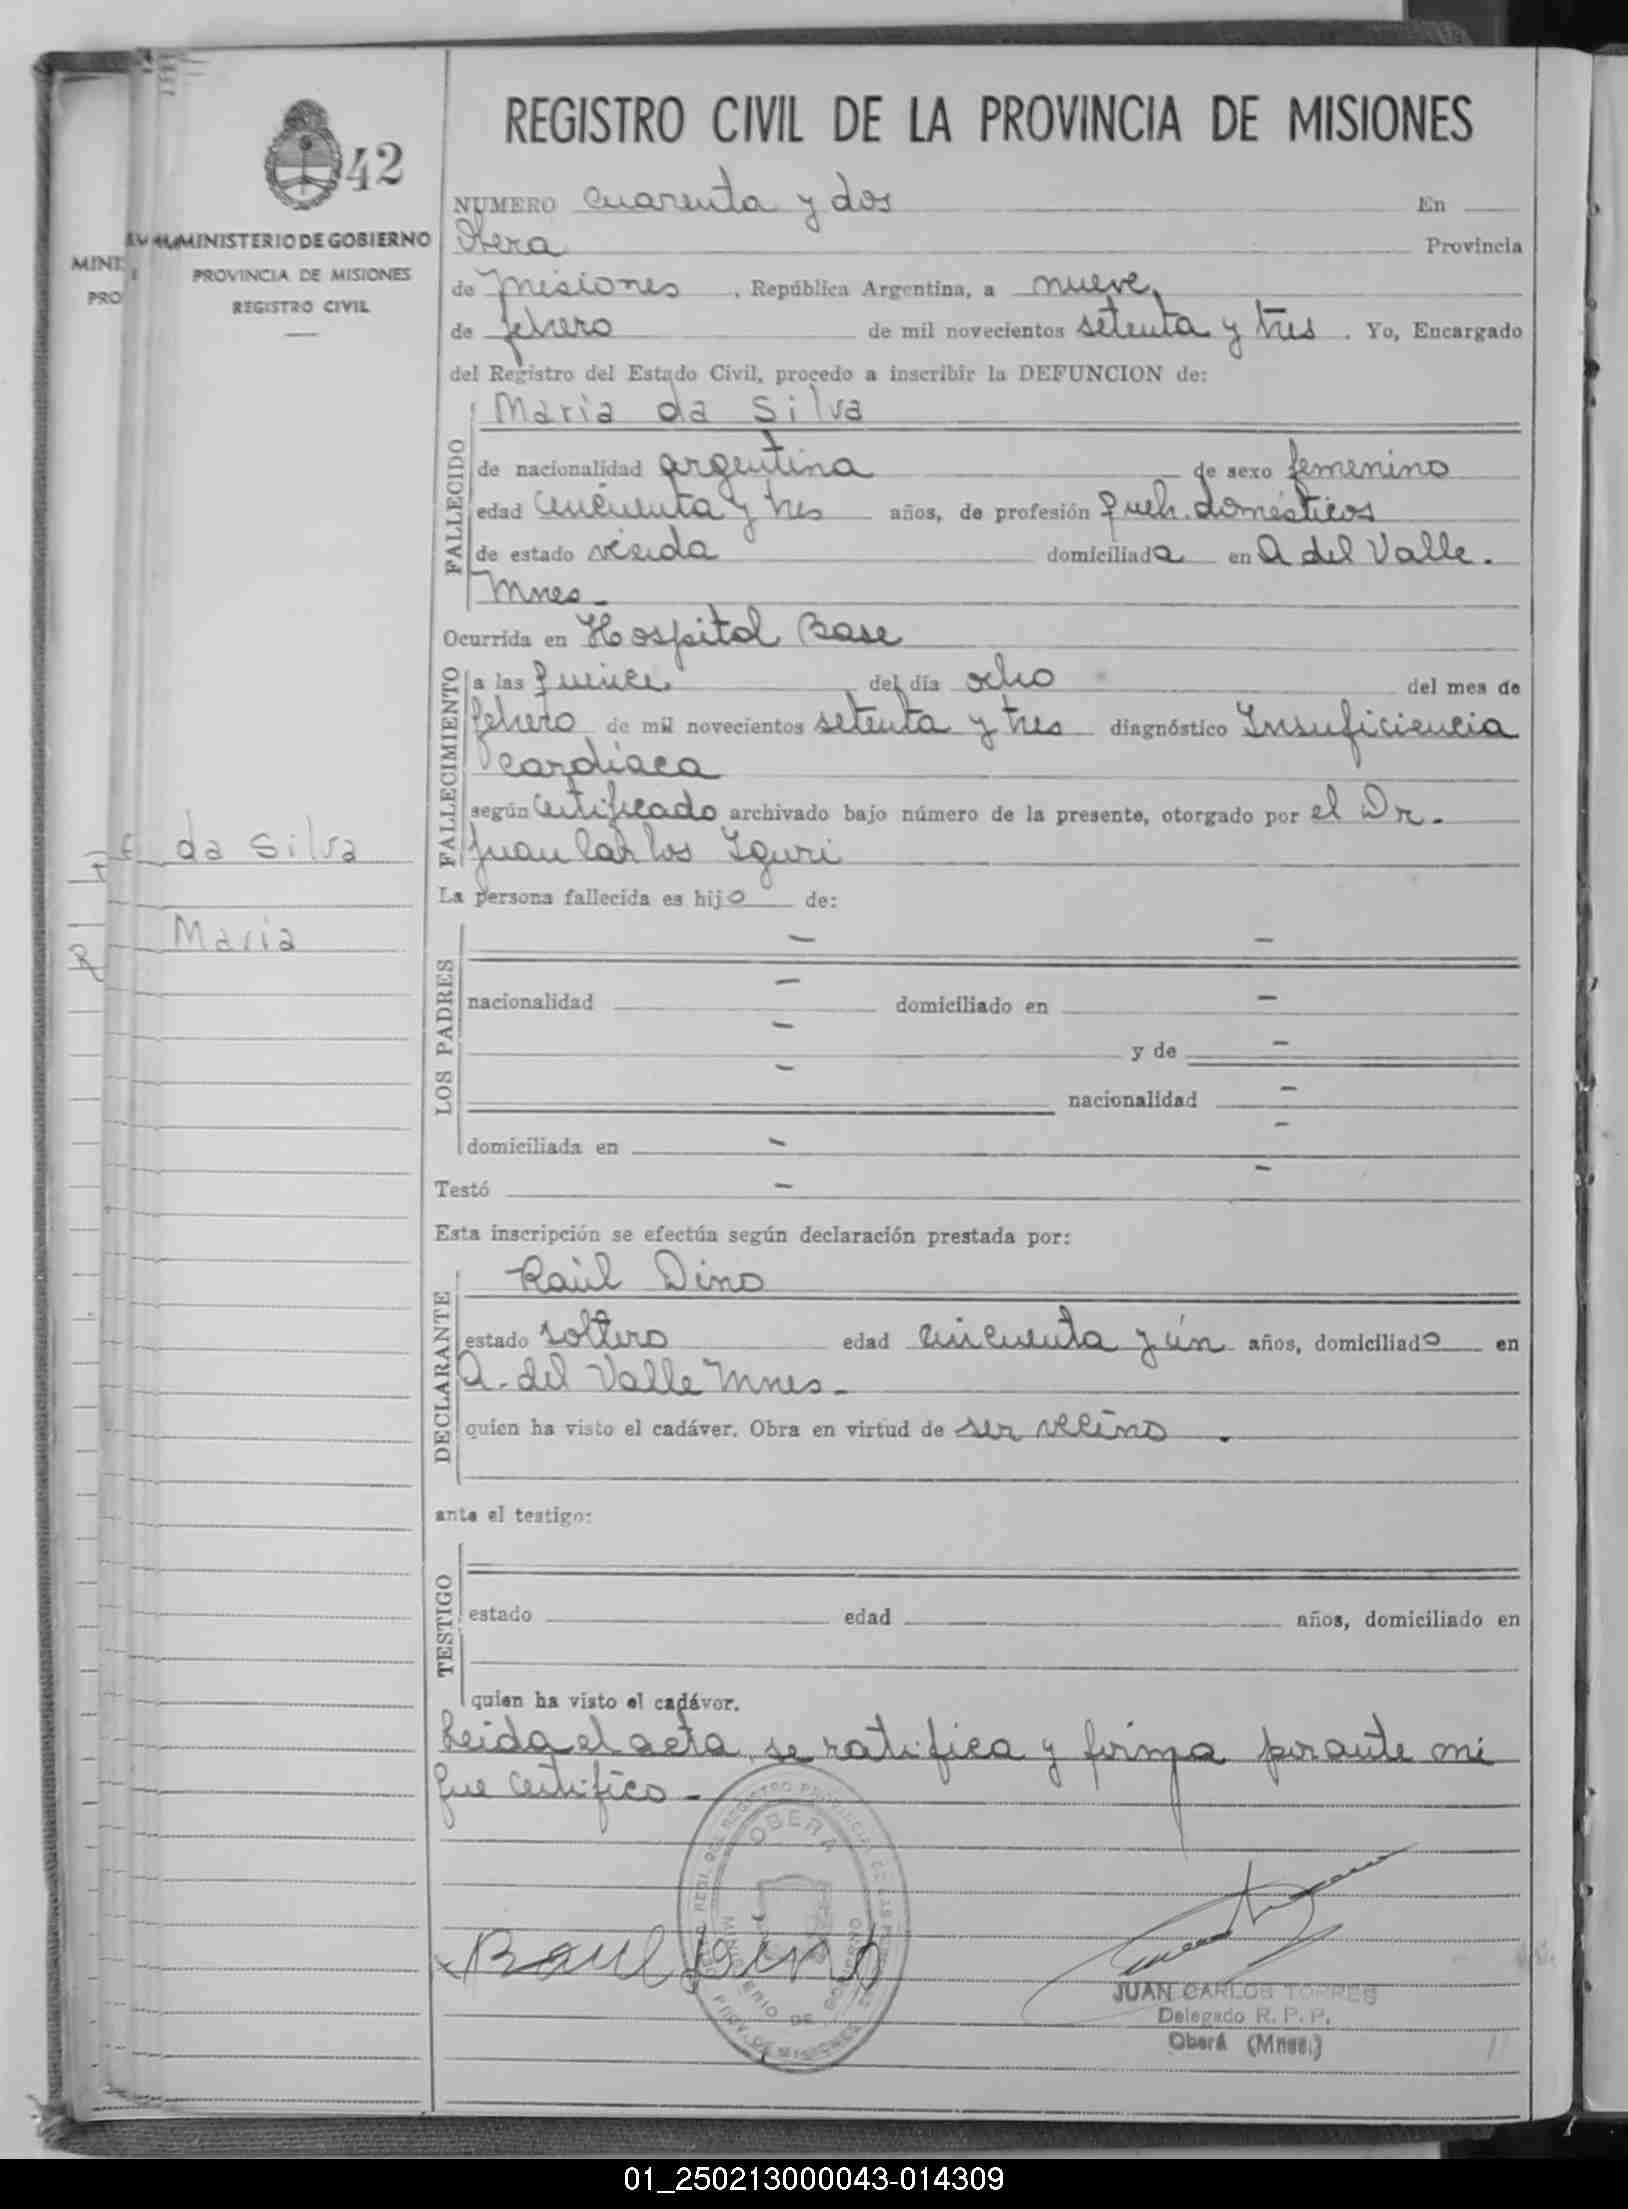 REGISTRO CIVIL DE LA PROVINCIA DE MISIONES
42
MINISTERIO DE GOBIERNO
PROVINCIA DE MISIONES
REGISTRO CIVIL
MINI
PRO
NUMERO cuarenta y dos En
Obera Provincia
de misiones, República Argentina, a nueve,
de febrero de mil novecientos setenta y tres. Yo, Encargado
del Registro del Estado Civil, procedo a inscribir la DEFUNCION de:
Maria da Silva
FALLECIDO
de nacionalidad argentina de sexo femenino
edad cincuenta y tres años, de profesión queh. domésticos
de estado viuda domiciliada en A del Valle.
Mnes-
Ocurrida en Hospital Base
FALLECIMIENTO
a las quince, del día ocho del mes de
febrero de mil novecientos setenta y tres diagnóstico Insuficiencia
cardiaca
según certificado archivado bajo número de la presente, otorgado por el Dr.
Juan Carlos Iguri
da Silva
Maria
La persona fallecida es hijo de:
LOS PADRES
— —
— —
nacionalidad domiciliado en
— y de —
— nacionalidad —
domiciliada en — —
Testó — —
Esta inscripción se efectúa según declaración prestada por:
DECLARANTE
Raúl Dino
estado soltero edad cincuenta y ún años, domiciliado en
A. del Valle Mnes-
quien ha visto el cadáver. Obra en virtud de ser vecino.
ante el testigo:
TESTIGO
estado edad años, domiciliado en
quien ha visto el cadáver.
Leida el acta, se ratifica y firma por ante mi
que certifico-
OBERA
PROV. DE MISIONES
Raul Dino
JUAN CARLOS TORRES
Delegado R. P. P.
Oberá (Mnes.)
01_250213000043-014309